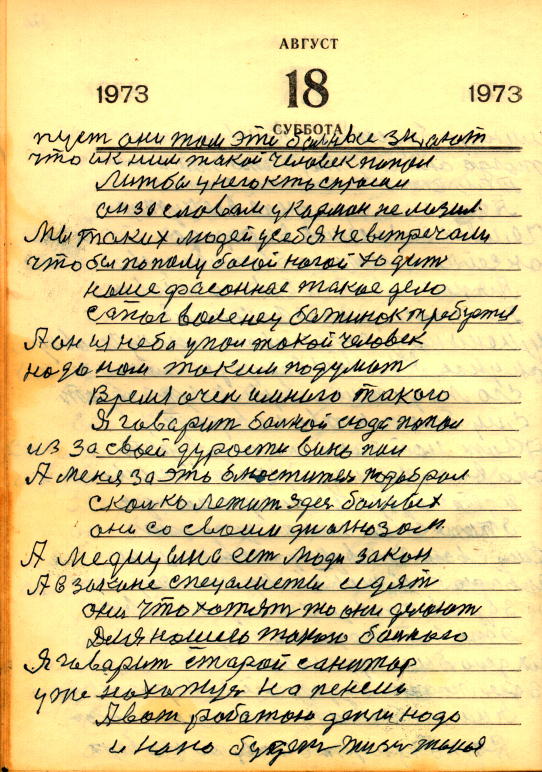 АВГУСТ
1973 18 1973
СУББОТА
пуст они том эти болные знают
что к ним такой человек попол
литбы у него кто спросил
он за словам у карман не лазил
Мы таких людей у себя не встречали
чтобы по полу босой ногой ходит
наше фасонное такое дело
сапог воленец батинок требуется
А он из неба упол такой человек
надо ном таким подумат
Время очен много такого
Я говарит болной сюда попол
из за своей дурости вино пил
А меня за это подоброл
сколко лежит здес болных
они со своим диогнозом
А медицина ест люди закон
А в законе специалисты сидят
они что хотят то они делоют
Для ношего токого болного
Я говарит старой санитар
уже нахожуся на пенсии
А вот работаю денги надо
и нано будет такая